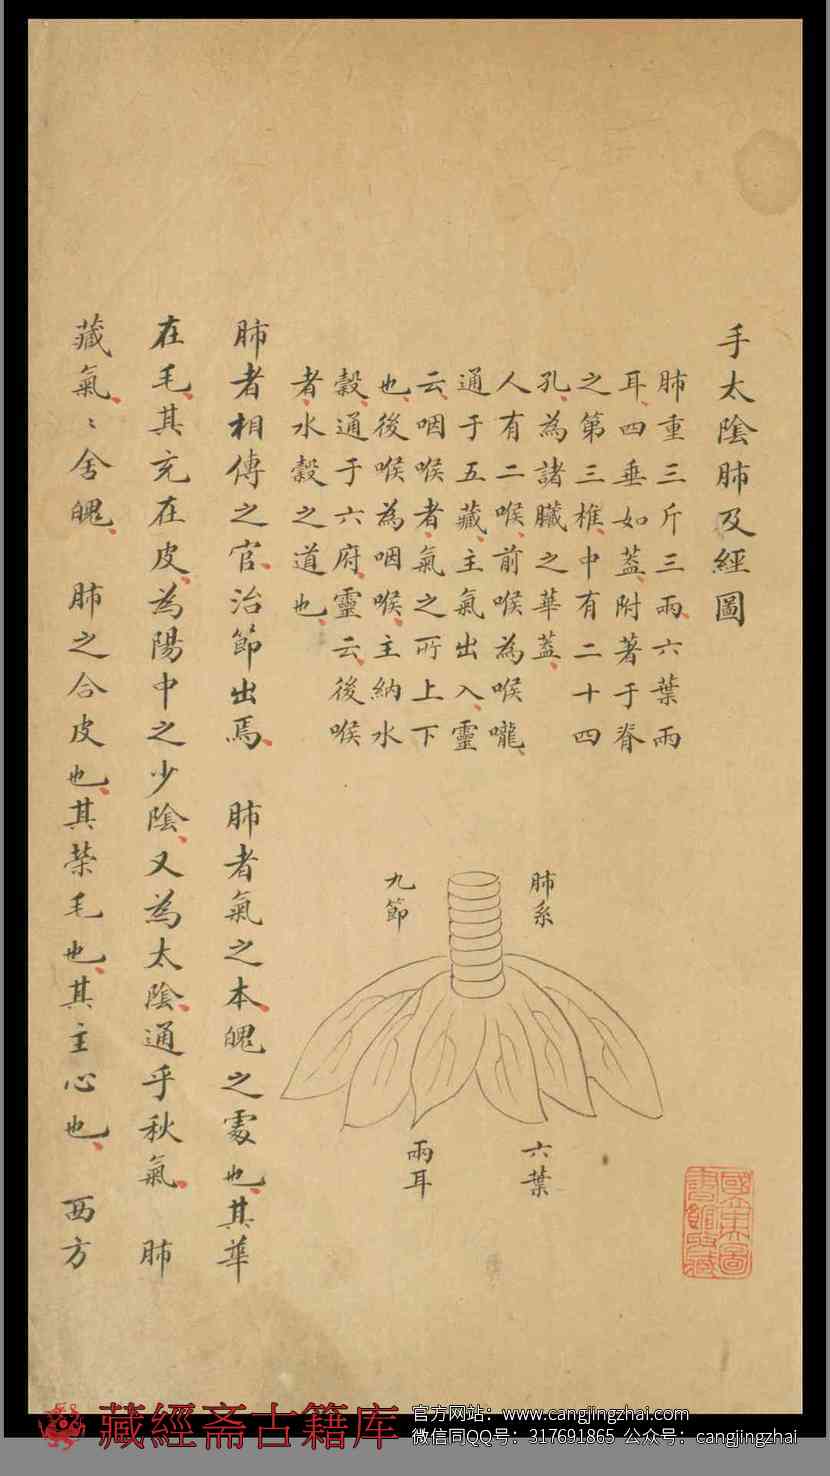 手太陰肺及經圖
肺重三斤三兩六葉兩
耳四垂如蓋附著于脊
之第三椎中有二十四
孔為諸臟之華蓋
人有二喉前喉為喉嚨
通于五藏主氣出入靈
云咽喉者氣之所上下
也後喉為咽喉主納水
穀通于六府靈云後喉
者水穀之道也
肺系
九節
六葉
兩耳
肺者相傅之官治節出焉　肺者氣之本魄之處也其華
在毛其充在皮為陽中之少陰又為太陰通乎秋氣　肺
藏氣〻舍魄　肺之合皮也其榮毛也其主心也　西方
國立中央圖
書館收藏
藏經斋古籍库
官方网站：www.cangjingzhai.com
微信同QQ号：317691865 公众号：cangjingzhai